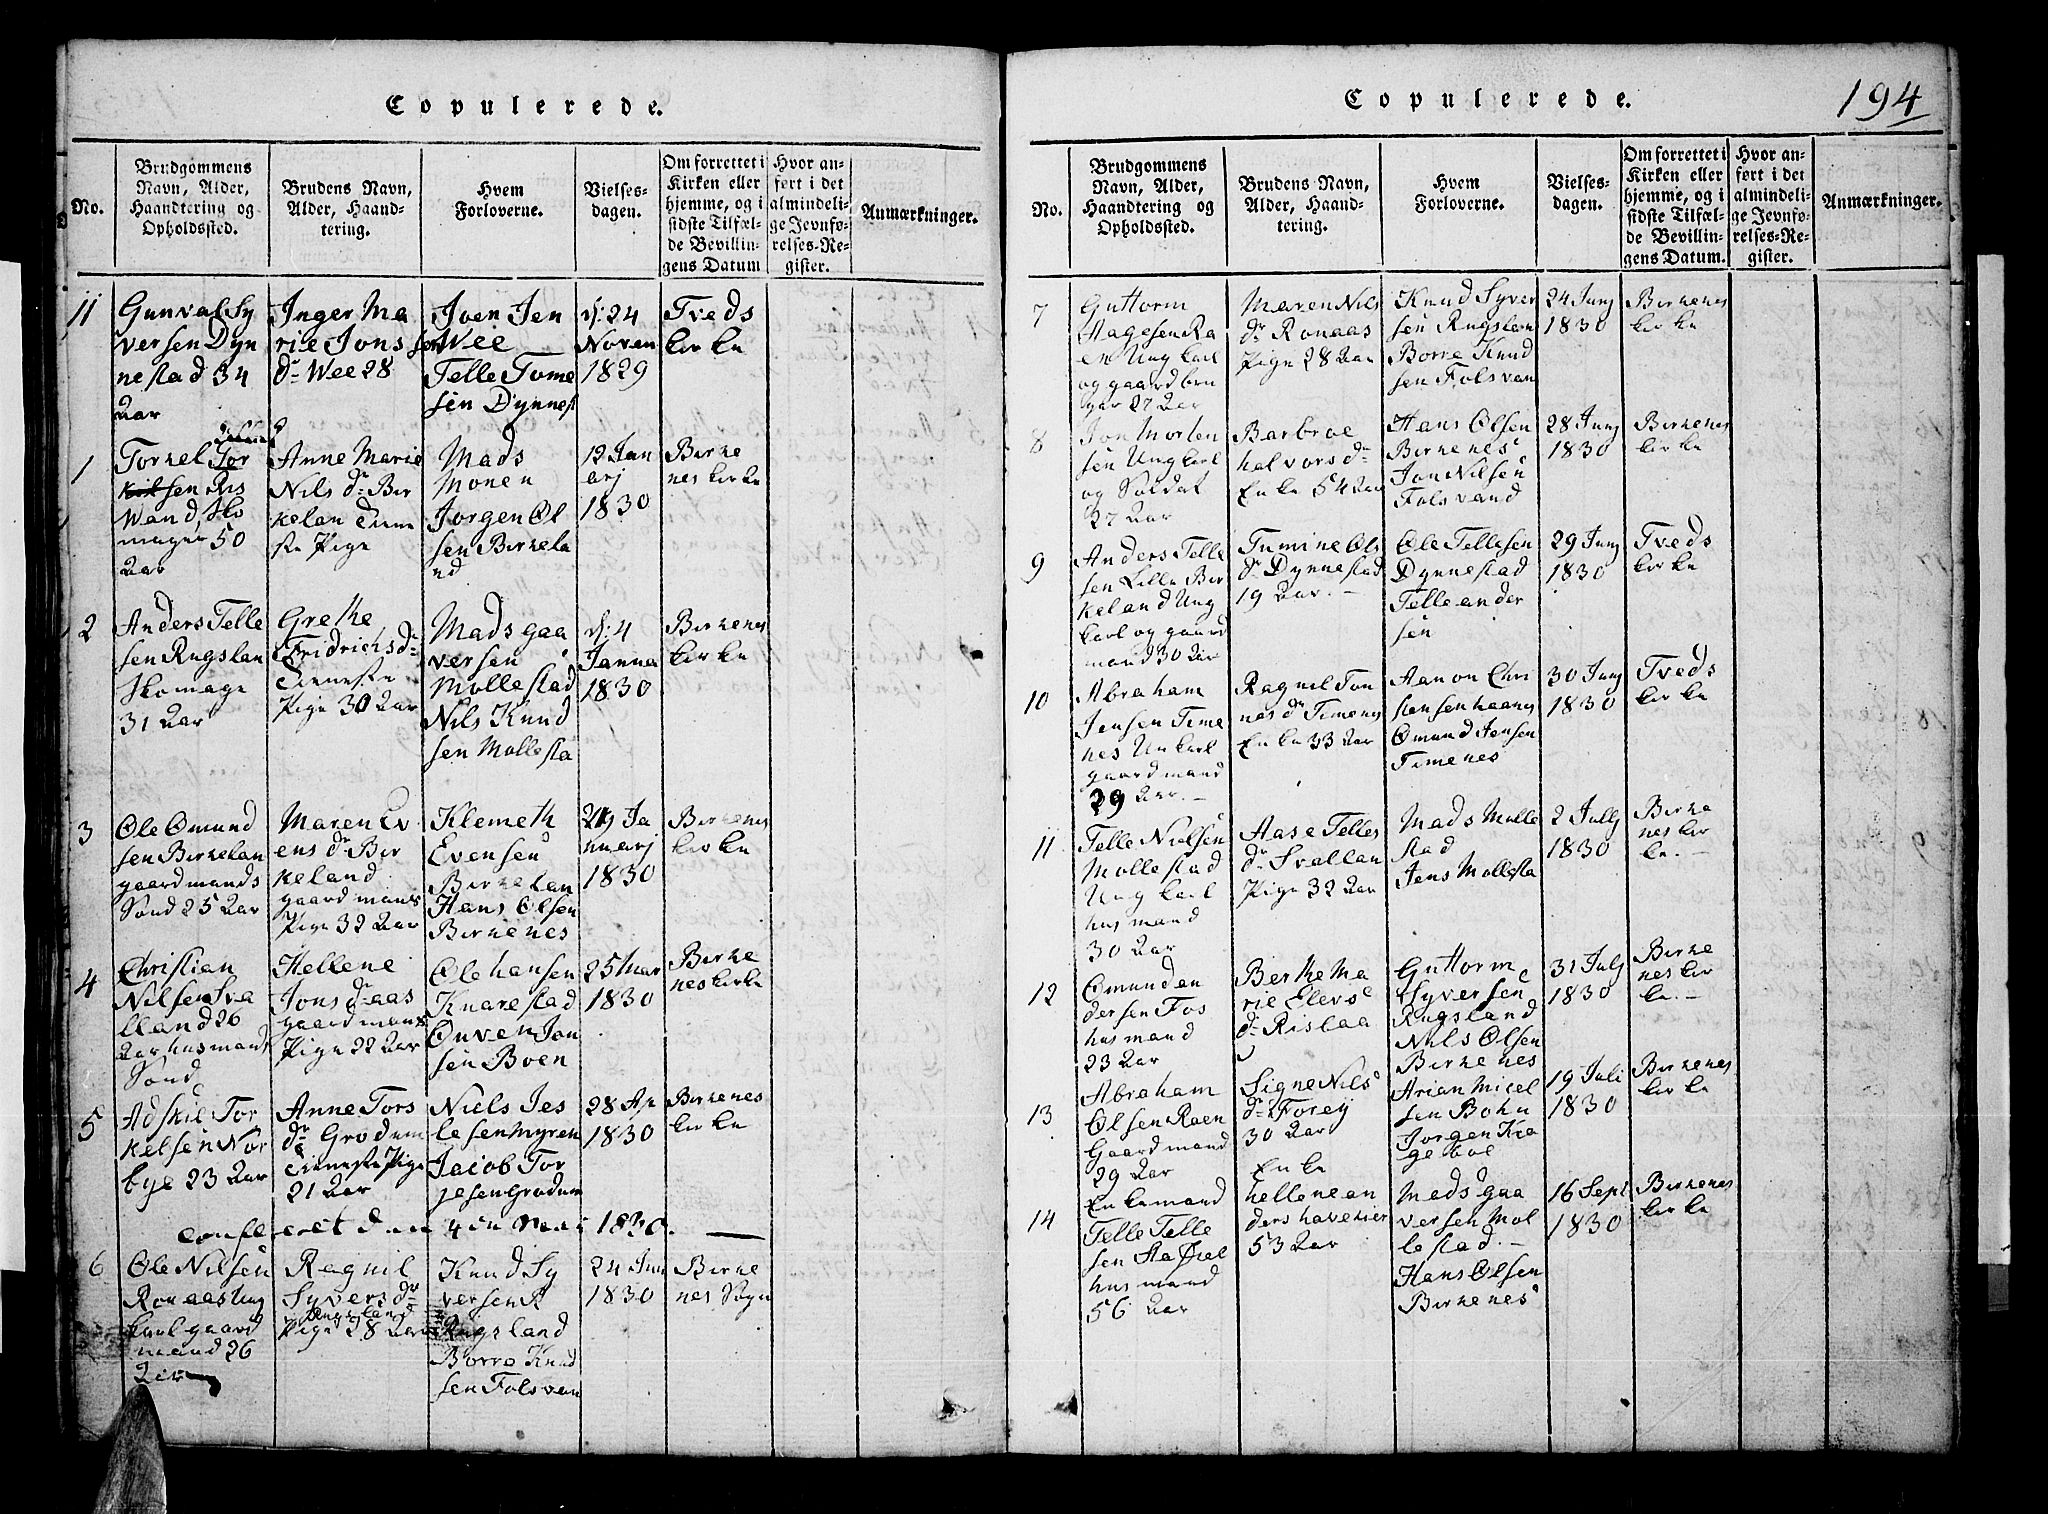 Copulerede.
No.
Brudgommens
Navn, Alder,
Haandtering og
Opholdssted.
Brudens Navn,
Alder, Haand-
tering.
Hvem
Forloverne.
Vielses-
dagen.
Om forrettet i
Kirken eller
hjemme, og i
sidste Tilfæl-
de Bevillin-
gens Datum
Hvor an-
ført i det
almindeli-
ge Jevnfø-
relses-Re-
gister.
Anmærkninger.
11
Gunval Sy
versen Dyn
nestad 34
Aar
Inger Ma
rie Jons
dr Wee 28
Joen Jen
sen Wee
Telle Tome
sen Dynnest
d: 24
Novem
1829
Tveds
kirke
1
Torkel Tor
sen Ris
Wand, sko
mager 50
Aar
Anne Marie
Nils dr Bir
kelan Tiene
ste Pige
Mads
Monen
Jorgen Ol
sen Birkela
nd
12 Jan
arj
1830
Birke
nes kirke
2
Anders Telle
sen Rugslan
skomage
31 Aar
Grethe
Fridrichs dr
Tieneste
Pige 30 Aar
Mads gaa
versen
Mollestad
Nils Knud
sen Mollesta
d: 4
Janua
1830
Birkenes
kirke
3
Ole Omund
sen Birkelan
gaardmands
Sond 25 Aar
Maren Ev
ens dr Bir
keland
gaardmans
Pige 32 Aar
Klemeth
Evensen
Birkelan
Hans Olsen
Birkenes
29 Ja
nuarj
1830
Birkenes
kirke
4
Christian
Nilsen Sva
lland 26
Aar husmans
Sond
Hellene
Jons dr aas
gaardmans
Pige 22 Aar
Ole hansen
Knarestad
Onven Jon
sen Boen
25 Mar
1830
Birke
nes kirke
5
Adskil Tor
kelsen Nor
bye 23 Aar
Anne Tors
dr Grodem
Tieneste Pige
21 Aar
Niels Jes
lesen Myren
Jacob Tor
jesen Grodum
28 Ap
1830
Birkenes
kirke
confereret den 4de Mai 1830.
6
Ole Nilsen
Ronaas Ung
karl gaard
mand 26
Aar
Ragnil
Syvers dr
Rugsland
Pige 28 Aar
Knud Sy
versen R
Rugsland
Borre Knud
sen Folsvan
24 Jun
1830
Birke
nes Sogn
Copulerede.
194
No.
Brudgommens
Navn, Alder,
Haandtering og
Opholdssted.
Brudens Navn,
Alder, Haand-
tering.
Hvem
Forloverne.
Vielses-
dagen.
Om forrettet i
Kirken eller
hjemme, og i
sidste Tilfæl-
de Bevillin-
gens Datum.
Hvor an-
ført i det
almindeli-
ge Jevnfø-
relses-Re-
gister.
Anmærkninger.
7
Guttorm
Aagesen Ra
en Ung karl
og gaardbru
ger 27 Aar
Maren Nils
dr Ronaas
Pige 28 Aar
Knud Syver
sen Rugslan
Borre Knud
sen Folsvan
24 Junj
1830
Birkenes
kirke
8
Jon Morten
sen Ung karl
og Soldat
27 Aar
Barbroe
halvors dr
Enke 54 Aar
Hans Olsen
Birkenes
Jon Nilsen
Folsvand
28 Junj
1830
Birkenes
kirke
9
Anders Telle
sen Lille Bir
keland Ung
karl og gaard
mand 30 Aar
Tumine Ols
dr Dynnestad
19 Aar. -
Ole Tellesen
Dynnestad
Telle ander
sen
29 Junj
1830
Tveds
kirke
10
Abraham
Jensen Time
nes Unkarl
gaardmand
29 Aar. -
Ragnil Ton
nes dr Timenes
Enke 33 Aar
Aanon Chri
stensen haanes
Omund Jensen
Timenes
30 Junj
1830
Tveds
kirke
11
Telle Nielsen
Mollestad
Ung karl
husmand
30 Aar
Aase Telles
dr Svallan
Pige 32 Aar
Mads Molle
stad
Jens Mollesta
2 Jullj
1830
Birke
nes kir
ke. -
12
Omund an
dersen Fos
husmand
23 Aar
Berthe Ma
rie Elevs
dr Rislaa
Guttorm
Syversen
Rugsland
Nils Olsen
Birkenes
31 Julj
1830
Birke
nes kir
ke. -
13
Abraham
Olsen Raen
Gaardmand
29 Aar
Enkemand
Signe Nils
dr Forey
30 Aar
Enke
Arian Micel
sen Bohn
Jorgen Kra
ge boe
19 Juli
1830
Birkenes
kirke
14
Telle Telle
sen
husmand
56 Aar
hellene an
ders havenier
53 Aar
Mads gaa
versen Mol
lestad. -
Hans Olsen
Birkenes
16 Sept
1830
Birkenes
kirke